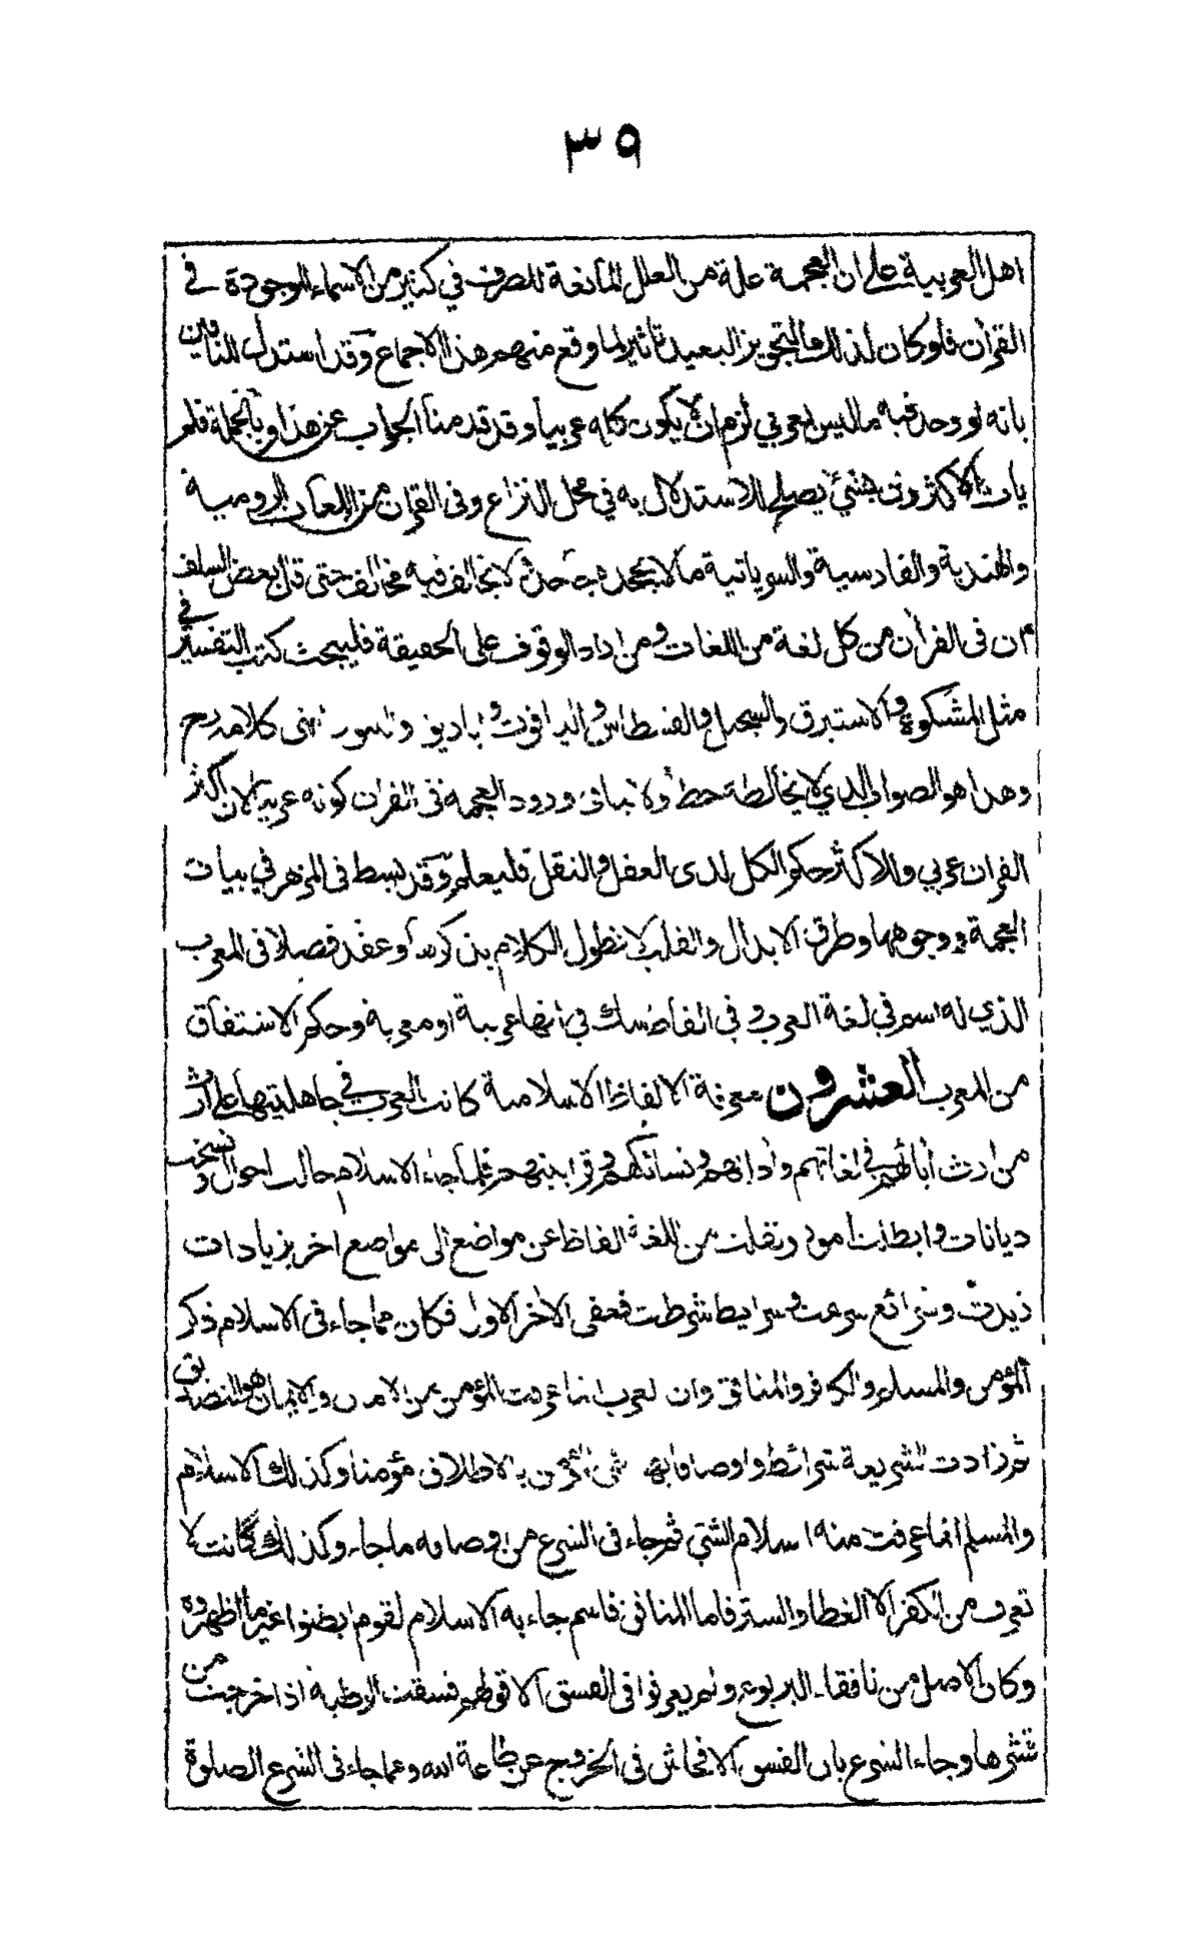 ٣٩
اهل العربية على ان العجمة علة من العلل المانعة للصرف في كثير من الاسماء الموجودة في
القرآن فلو كان لذلك التجويز البعيد تأثير لما وقع منهم هذا الاجماع وقد استدل النافين
بانه لو وجد فيه ما ليس بعربي لزم ان لا يكون كله عربيا وقد قدمنا الجواب عن هذا وبالجملة فلم
يات الاكثرون بشئ يصلح للاستدلال به في محل النزاع وفى القران من اللغات الرومية
والهندية والفارسية والسريانية ما لا يجحده جاحد ولا يخالف فيه مخالف حتى قال بعض السلف
ان فى القرآن من كل لغة من اللغات ومن اراد الوقوف على الحقيقة فليبحث كتب التفسير في
مثل المشكوة والاستبرق والسجيل والقسطاس والياقوت واباريق وتنور انتهى كلامه رح
وهذا هو الصواب الذي لا يخالطه خطأ ولا ينافى ورود العجمة فى القران كونه عربيا لان اكثر
القران عربي وللاكثر حكم الكل لدى العقل والنقل فليعلم وقد بسط فى المزهر في بيان
العجمة ووجوهها وطرق الابدال والقلب لا نطول الكلام بذكرها وعقد فصلا فى المعرب
الذي له اسم في لغة العرب وفي الفاظ شك في انها عربية او معربة وحكم الاشتقاق
من المعرب العشرون معرفة الالفاظ الاسلامية كانت العرب في جاهليتها على ارث
من ارث آبائهم في لغاتهم وآدابهم ونسائكهم وقرابينهم فلما جاء الاسلام حالت احوال ونسخت
ديانات وابطلت امور ونقلت من اللغة الفاظ عن مواضع الى مواضع اخر بزيادات
زيدت وشرائع شرعت وشرايط شرطت فعفى الاخر الاول فكان مما جاء فى الاسلام ذكر
المؤمن والمسلم والكافر والمنافق وان العرب انما عرفت المؤمن من الامان والايمان هو التصديق
ثم زادت الشريعة شرائط واوصافا بها سمى المؤمن بالاطلاق مؤمنا وكذلك الاسلام
والمسلم انما عرفت منه اسلام الشئ ثم جاء فى الشرع من اوصافه ما جاء وكذلك كانت لا
تعرف من الكفر الا الغطاء والستر فاما المنافق فاسم جاء به الاسلام لقوم ابطنوا غير ما اظهروه
وكان الاصل من نافقاء اليربوع ولم يعرفوا فى الفسق الا قولهم فسقت الرطبة اذا خرجت من
قشرها وجاء الشرع بان الفسق الافحاش فى الخروج عن طاعة الله ومما جاء فى الشرع الصلوة